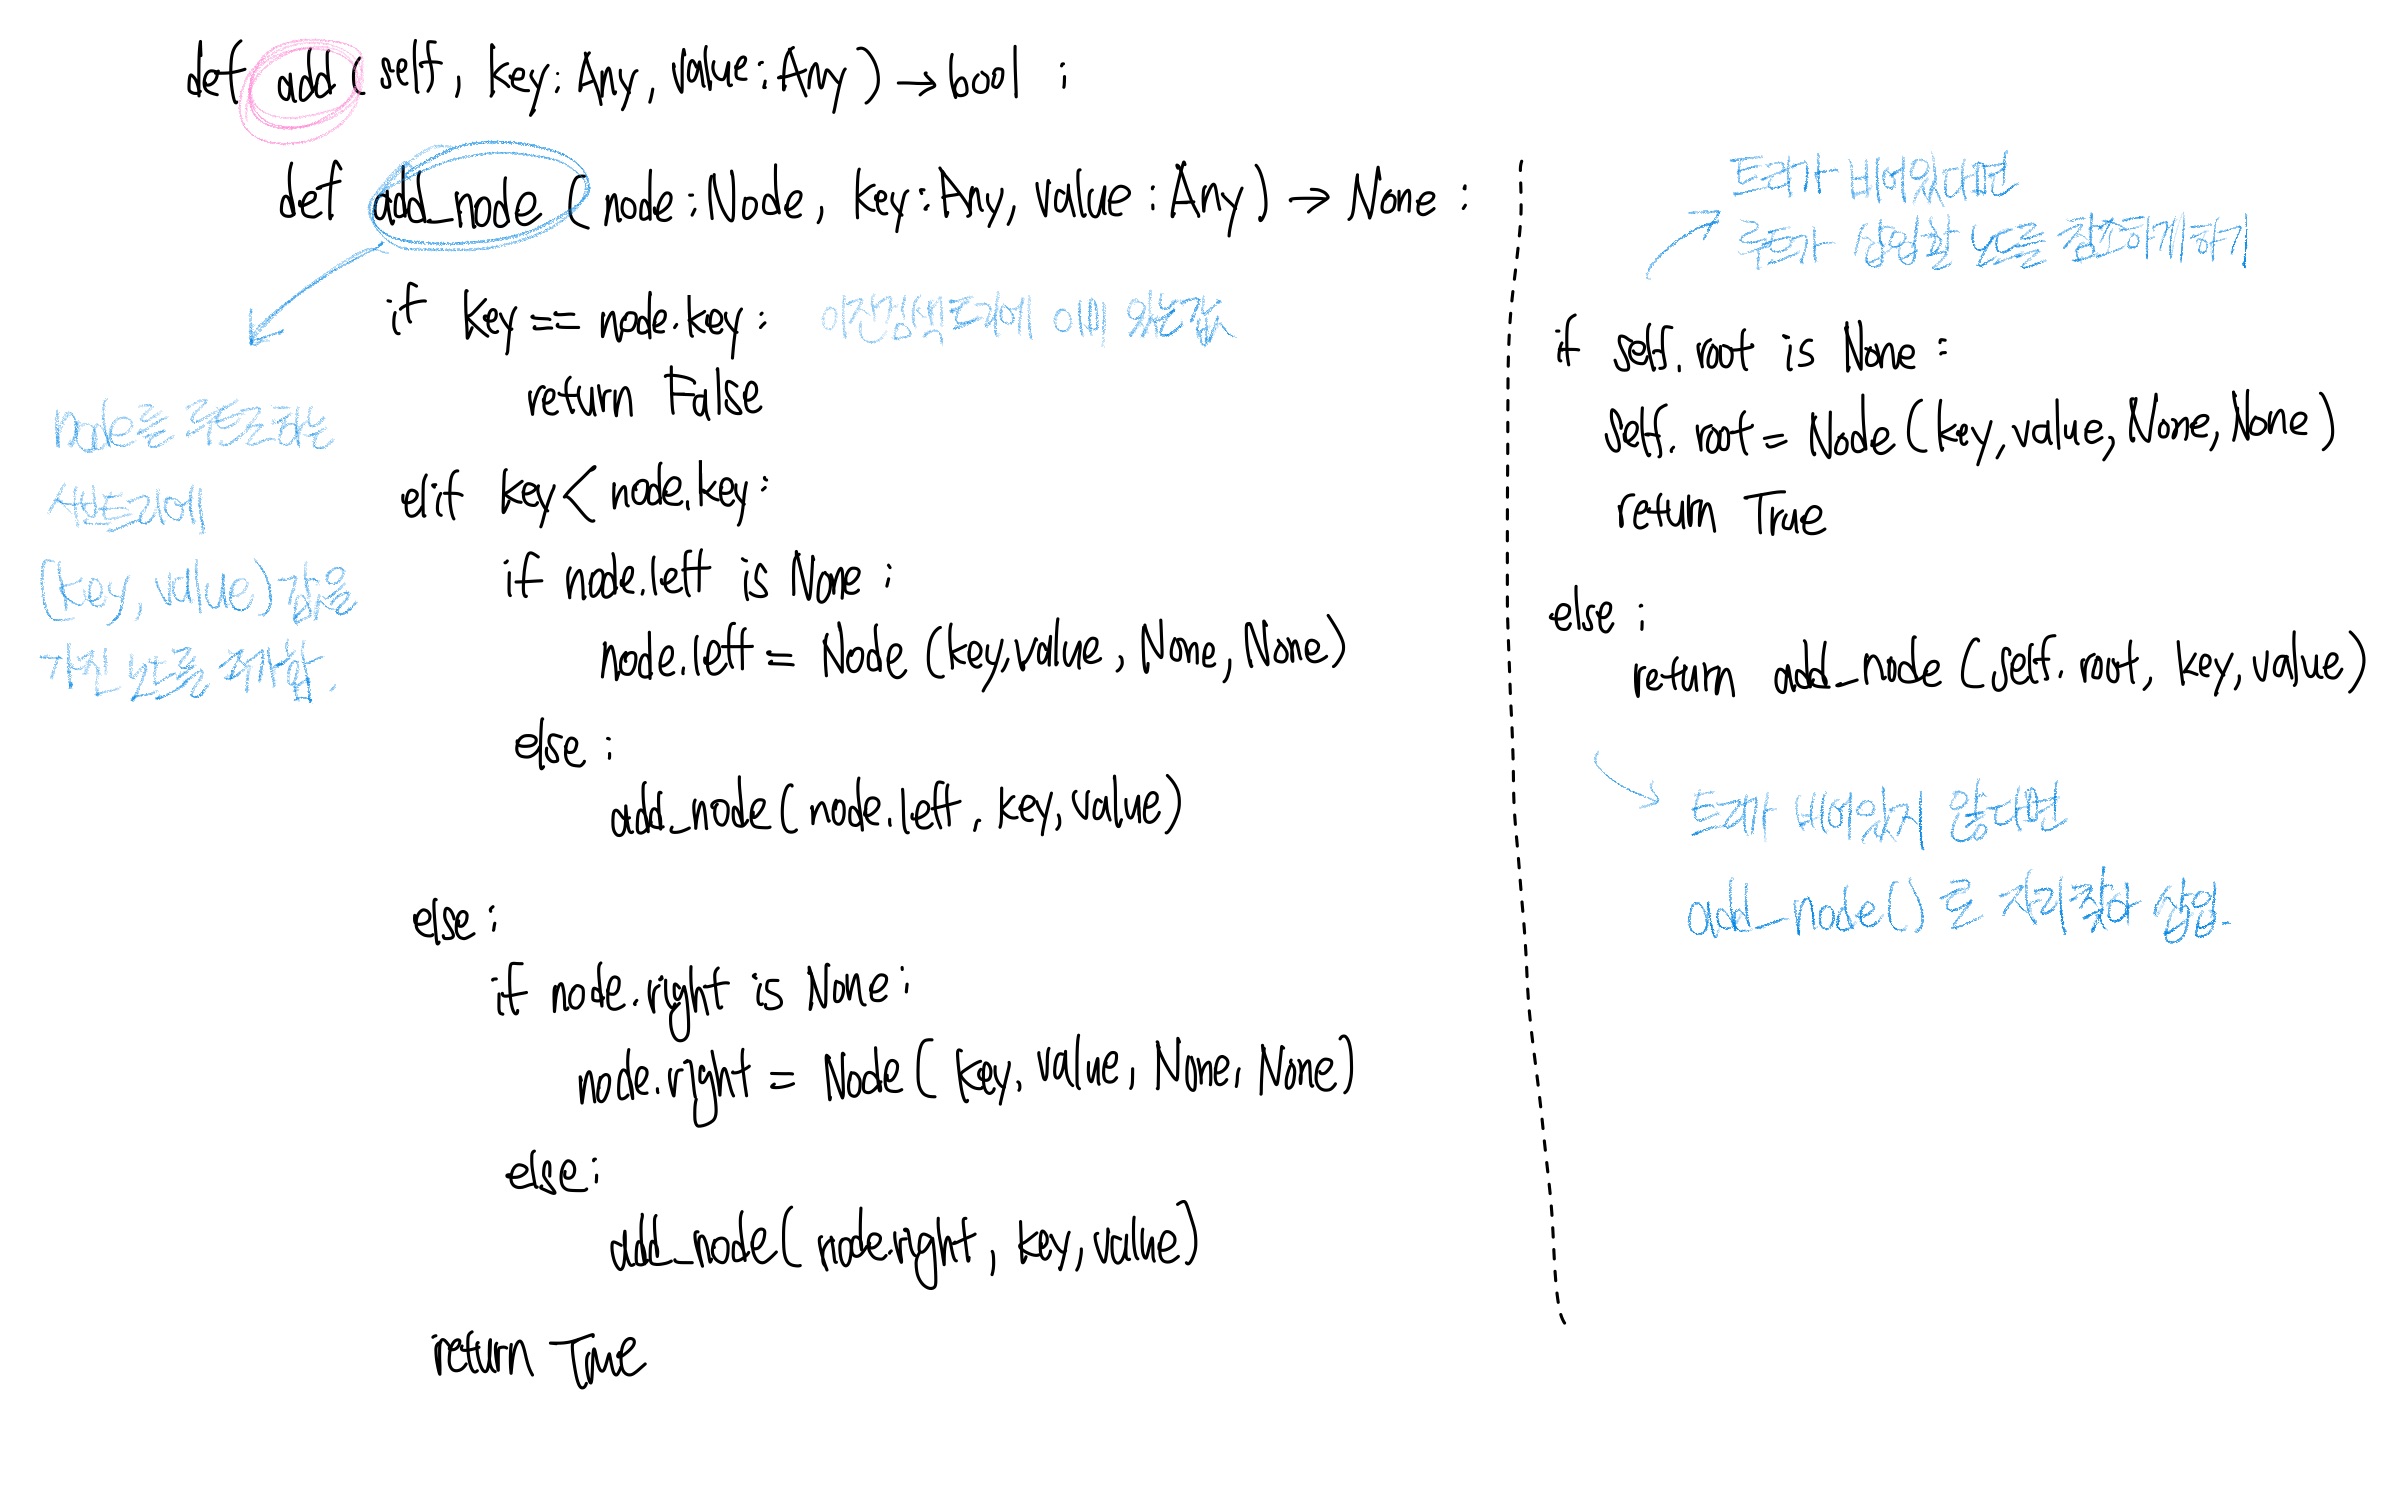 def add(self, key: Any, value: Any) → bool :
def add_node (node: Node, key: Any, value: Any) → None :
if key == node.key: 이진검색트리에 이미 있는값
return False
elif key < node.key:
if node.left is None :
node.left = Node (key,value, None, None)
else :
add_node(node.left, key, value)
else :
if node.right is None :
node.right = Node( key, value, None, None)
else:
add_node( node.right, key, value)
return True
node를 루트로하는
서브트리에
(key, value) 값을
가진 노드를 추가함.
트리가 비어있다면
루트가 삽입할 노드를 참조하게하기
if self.root is None :
self.root = Node (key,value, None, None)
return True
else :
return add_node (self.root, key, value)
트리가 비어있지 않다면
add_node() 로 자리찾아 삽입.